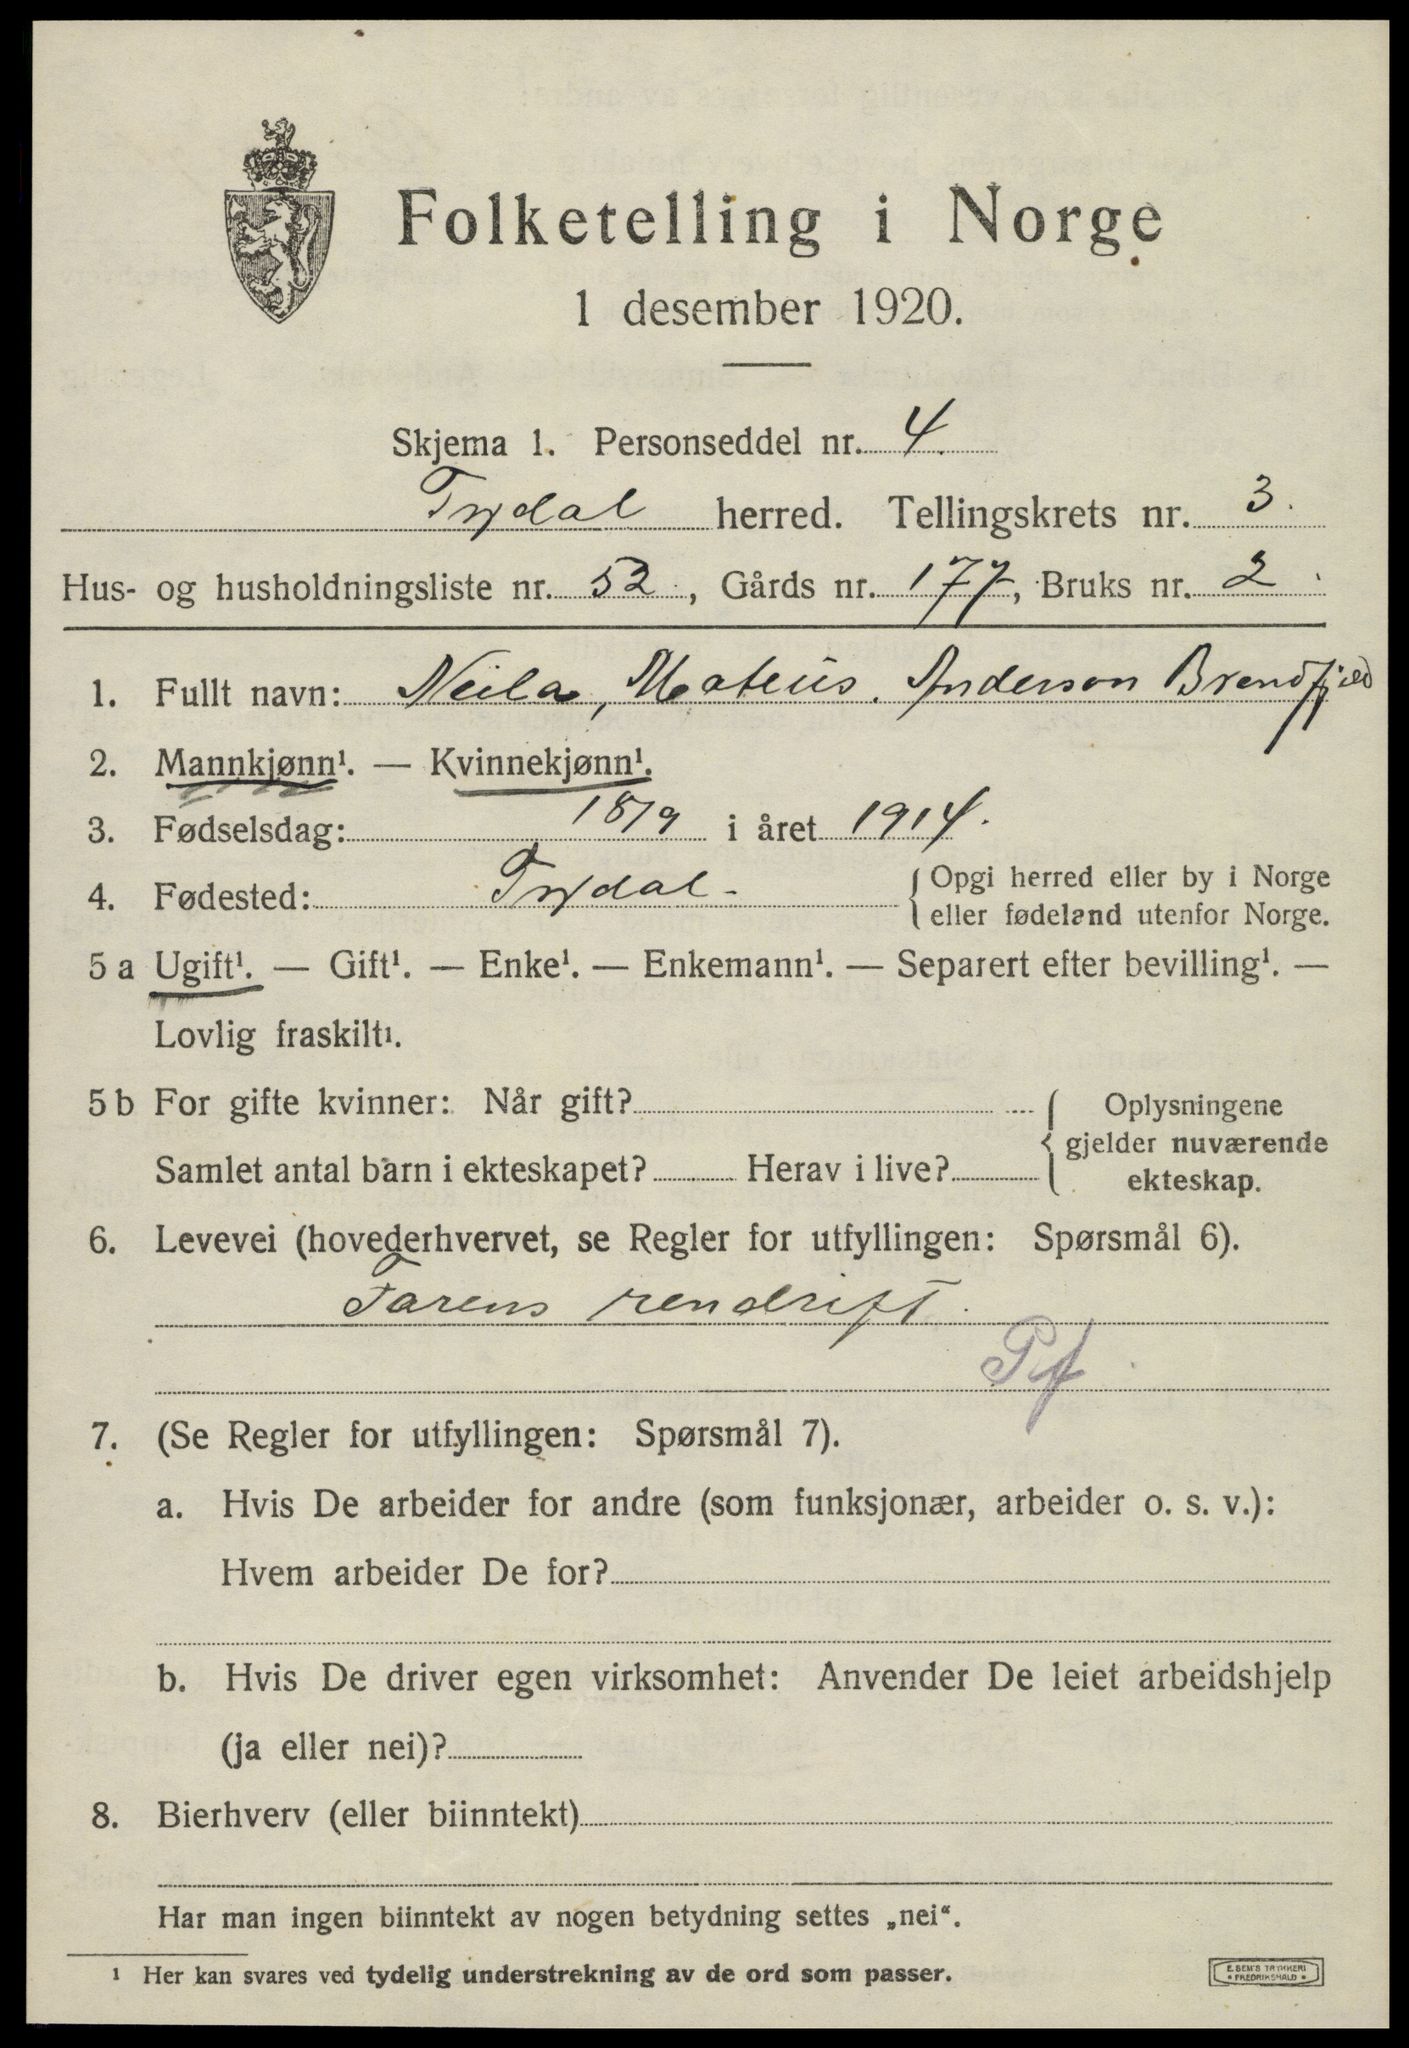 Folketelling i Norge
1 desember 1920.
Skjema 1. Personseddel nr. 4
Tydal herred. Tellingskrets nr. 3.
Hus- og husholdningsliste nr. 52, Gårds nr. 177, Bruks nr. 2
1. Fullt navn: Neila, Mateus. Anderson Brendfjeld
2. Mannkjønn¹. — Kvinnekjønn¹.
3. Fødselsdag: 18/9 i året 1914.
4. Fødested: Tydal. { Opgi herred eller by i Norge
eller fødeland utenfor Norge.
5 a Ugift¹. — Gift¹. — Enke¹. — Enkemann¹. — Separert efter bevilling¹. —
Lovlig fraskilt¹.
5 b For gifte kvinner: Når gift? { Oplysningene
gjelder nuværende
Samlet antal barn i ekteskapet? Herav i live?
ekteskap.
6. Levevei (hovederhvervet, se Regler for utfyllingen: Spørsmål 6).
Farens rendrift.
7. (Se Regler for utfyllingen: Spørsmål 7).
a. Hvis De arbeider for andre (som funksjonær, arbeider o. s. v.):
Hvem arbeider De for?
b. Hvis De driver egen virksomhet: Anvender De leiet arbeidshjelp
(ja eller nei)?
8. Bierhverv (eller biinntekt)
Har man ingen biinntekt av nogen betydning settes „nei“.
¹ Her kan svares ved tydelig understrekning av de ord som passer.
E. SEM'S TRYKKERI
• FREDRIKSHALD •